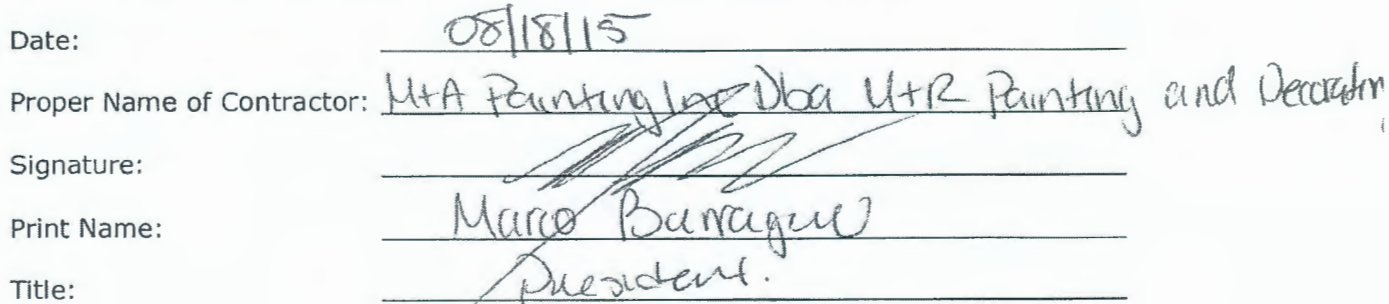 Date: 08/18/15
Proper Name of Contractor: M+A Painting Inc Dba M+R Painting and Decoratin
Signature:
Print Name: Marco Barragan
Title: President.